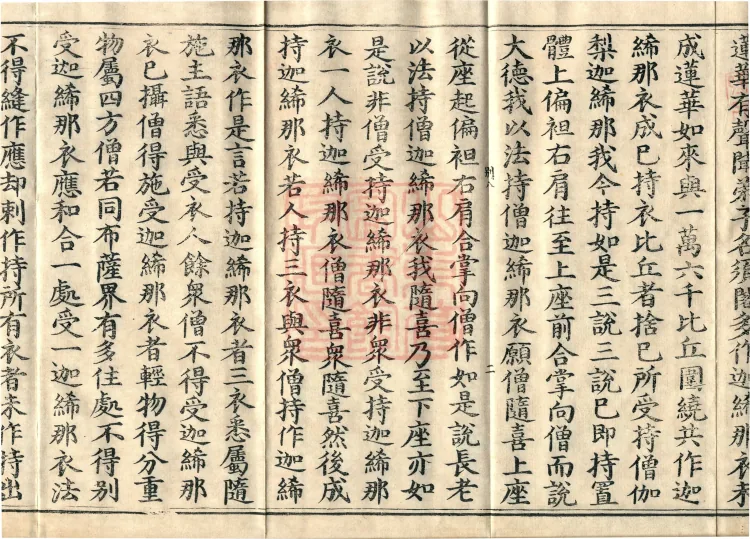 蓮華有聲聞弟子名須闍多作迦絺那衣未
成蓮華如來與一萬六千比丘圍繞共作迦
絺那衣成已持衣比丘者捨已所受持僧伽
梨迦絺那我今持如是三說三說已即持置
體上偏袒右肩往至上座前合掌向僧而說
大德我以法持僧迦絺那衣願僧隨喜上座
從座起偏袒右肩合掌向僧作如是說長老
以法持僧迦絺那衣我隨喜乃至下座亦如
是說非僧受持迦絺那衣非衆受持迦絺那
衣一人持迦絺那衣僧隨喜衆隨喜然後成
持迦絺那衣若人持三衣與衆僧持作迦絺
那衣作是言若持迦絺那衣者三衣悉屬隨
施主語悉與受衣人餘衆僧不得受迦絺那
衣已攝僧得施受迦絺那衣者輕物得分重
物屬四方僧若同布薩界有多住處不得別
受迦絺那衣應和合一處受一迦絺那衣法
不得縫作應却刺作持所有衣者未作持出